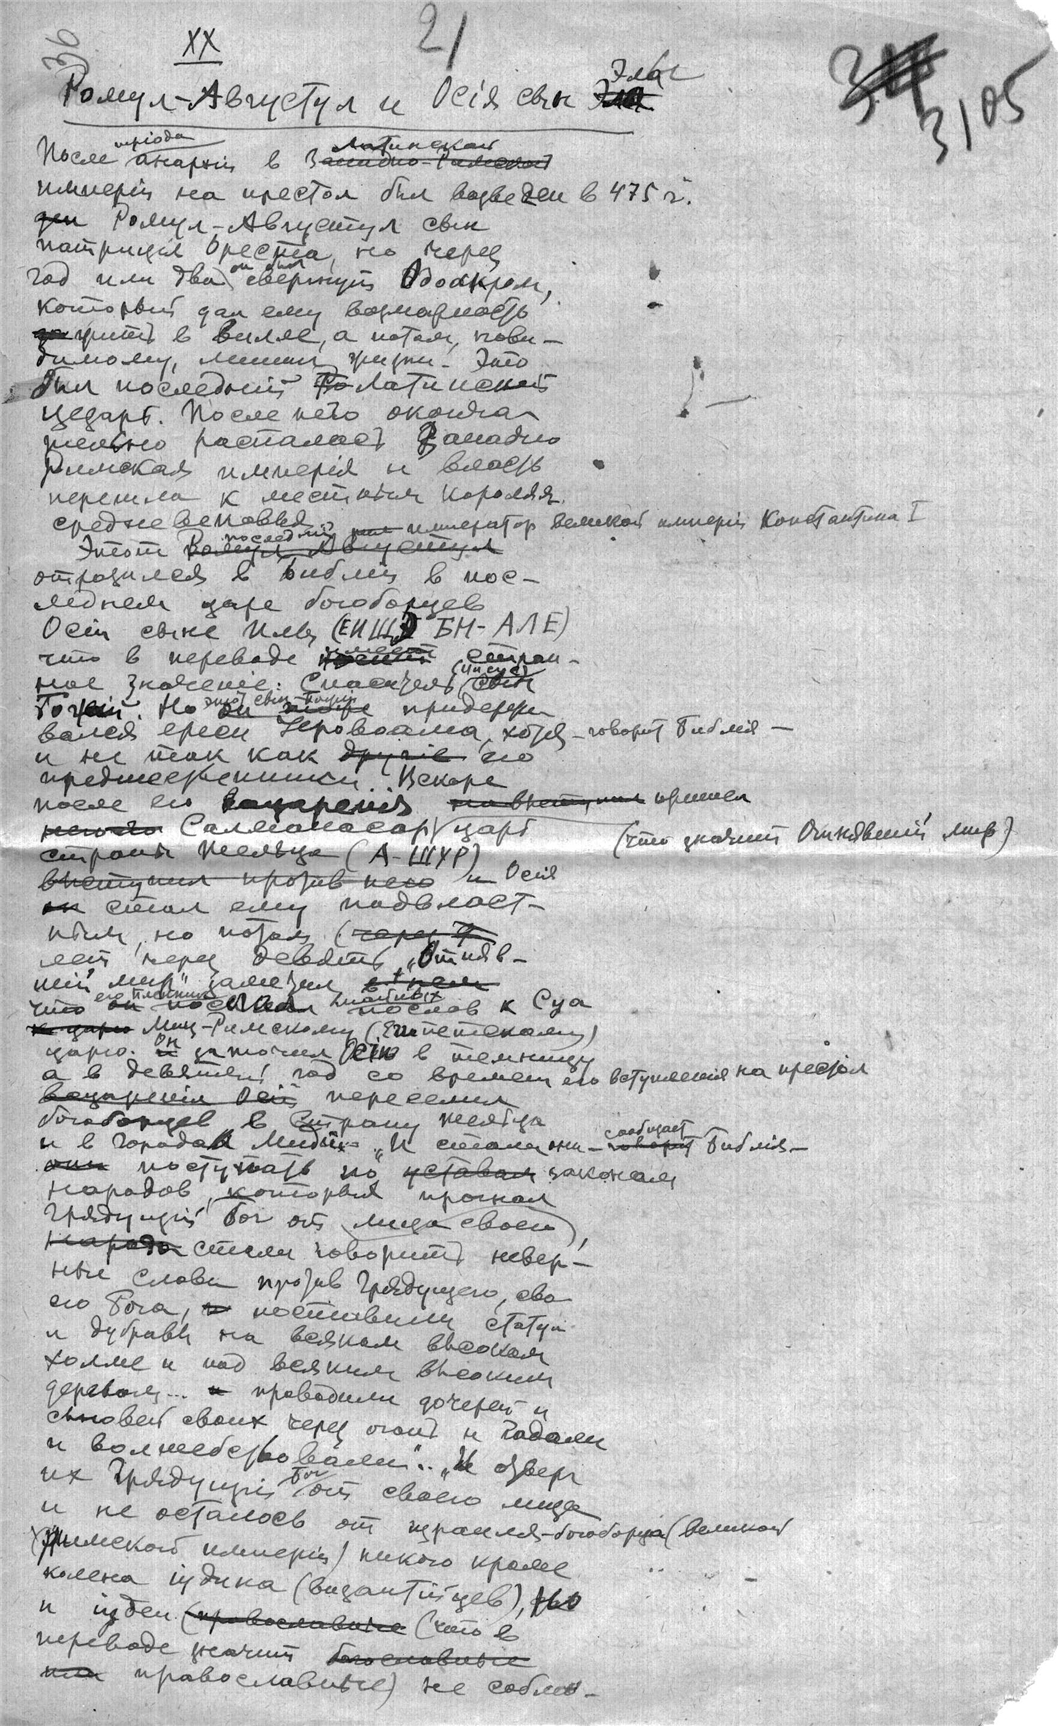 36
XX
21
Эла
3105
Ромул-Августул и Осія сын
періода
Латинской
После анархіи в Западно-Римской
имперіи на престол был возведен в 475 г.
Ромул-Августул сын
патриція Ореста, но через
он был
год или два свергнут Одоакром,
который дал ему возможность
жить в вилле, а потом, пови-
димому, лишил жизни. Это
был последній Латинскій
цезарь. После него оконча-
тельно распалась Западно
Римская имперія и власть
перешла к местным королям
средневековья.
последній император великой имперіи Константина I
Этот Ромул Августул
отразился в Библіи в пос-
леднем царе богоборцев
Осіи сыне Илы (ЕИШУ БН-АЛЕ)
что в переводе имеет стран-
ное значение: Спаситель (Иисус) сын
Божій. Но этот сын Божій придержи
вался ереси Іеровоама, хотя - говорит Библія -
и не так как другіе его
предшественники. Вскоре
после его воцаренія на выступил пришел
Салманасар царь (что значит Отнявшій мир)
страны Месяца (А-ШУР)
выступил против него и Осія
он стал ему подвласт-
ным, но потом (через
лет через девять "Отняв-
шій мир" заметил
что он посылал послов к Суа
к царю Миц-Римскому (Египетскому)
царю. Он заточил Осію в темницу
а в девятый год со времен его вступления на престол
воцаренія Осіи переселил
богоборцев в Страну месяца
и в города Мидіи. "И стали они - сообщает говорит Библія -
они поступать по уставам законам
народов, которых прогнал
Грядущій Бог от лица своего,
народа стали говорить невер-
ные слова против Грядущего, сво
его Бога, и поставили статуи
и дубравы на всяком высоком
холме и под всяким высоким
деревом... и проводили дочерей и
сыновей своих через огонь и гадали
и волшебствовали".. "И отверг
их Грядущій Бог от своего лица
и не осталось от израиля-богоборца (великой
Римской имперіи) никого кроме
колена іудина (византійцев), но
и іудеи (православные (что в
переводе значит богославные
или православные) не соблю-